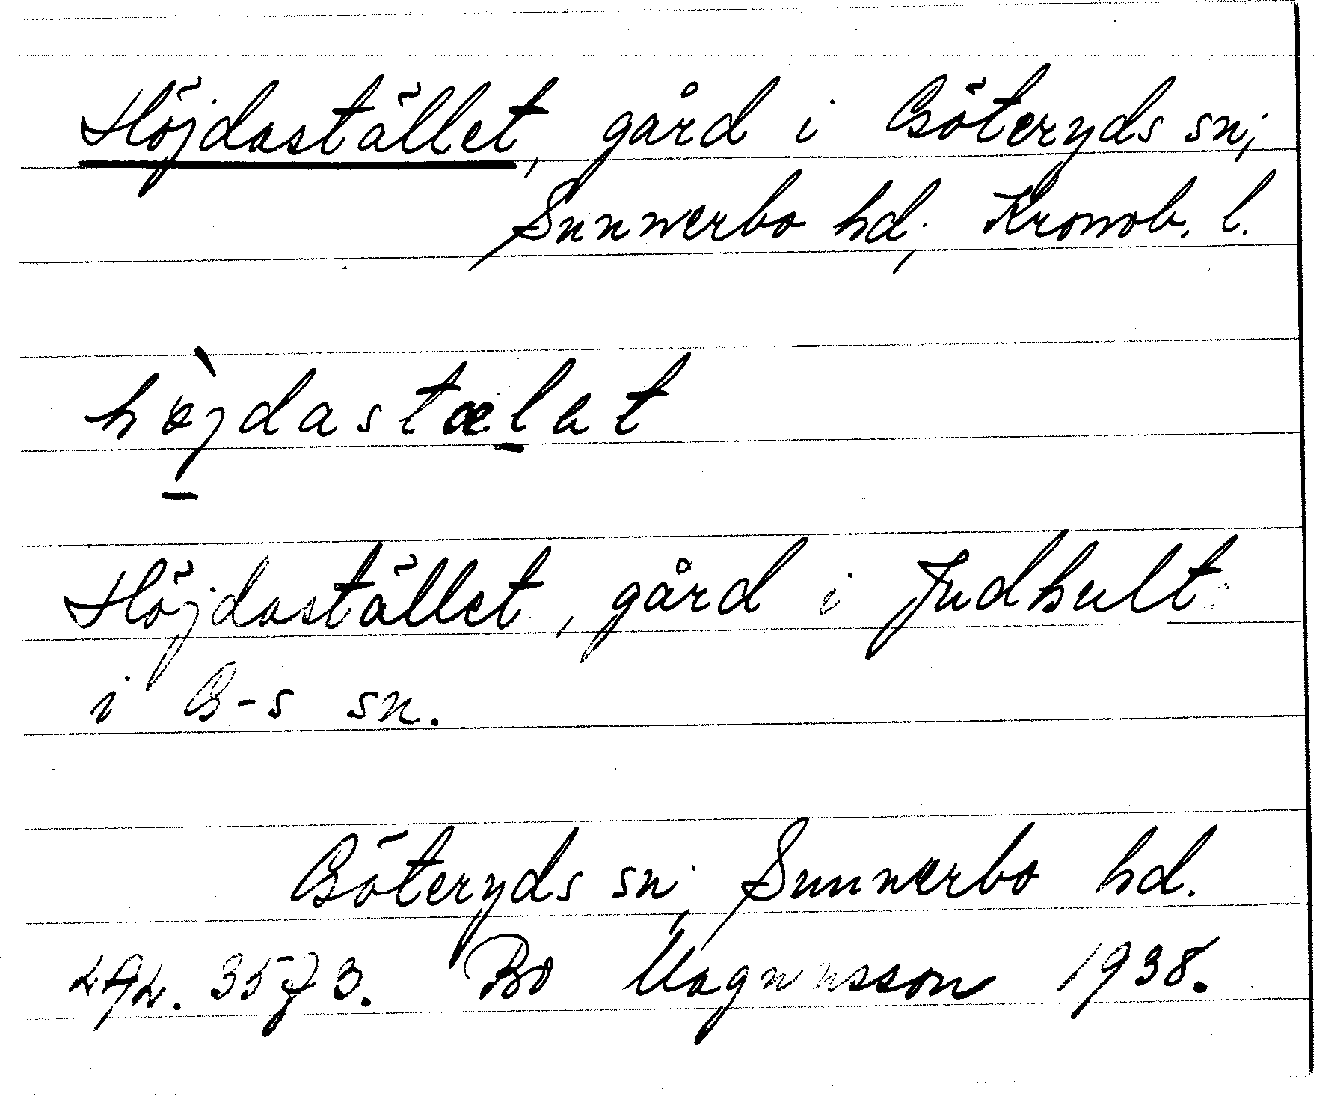 Höjdastället, gård i Göteryds sn,
Sunnerbo hd, Kronob. l.
höjdastælet
Höjdastället, gård i Judhult
i G-s sn.
Göteryds sn, Sunnerbo hd.
3573. Bo Magnusson 1938.